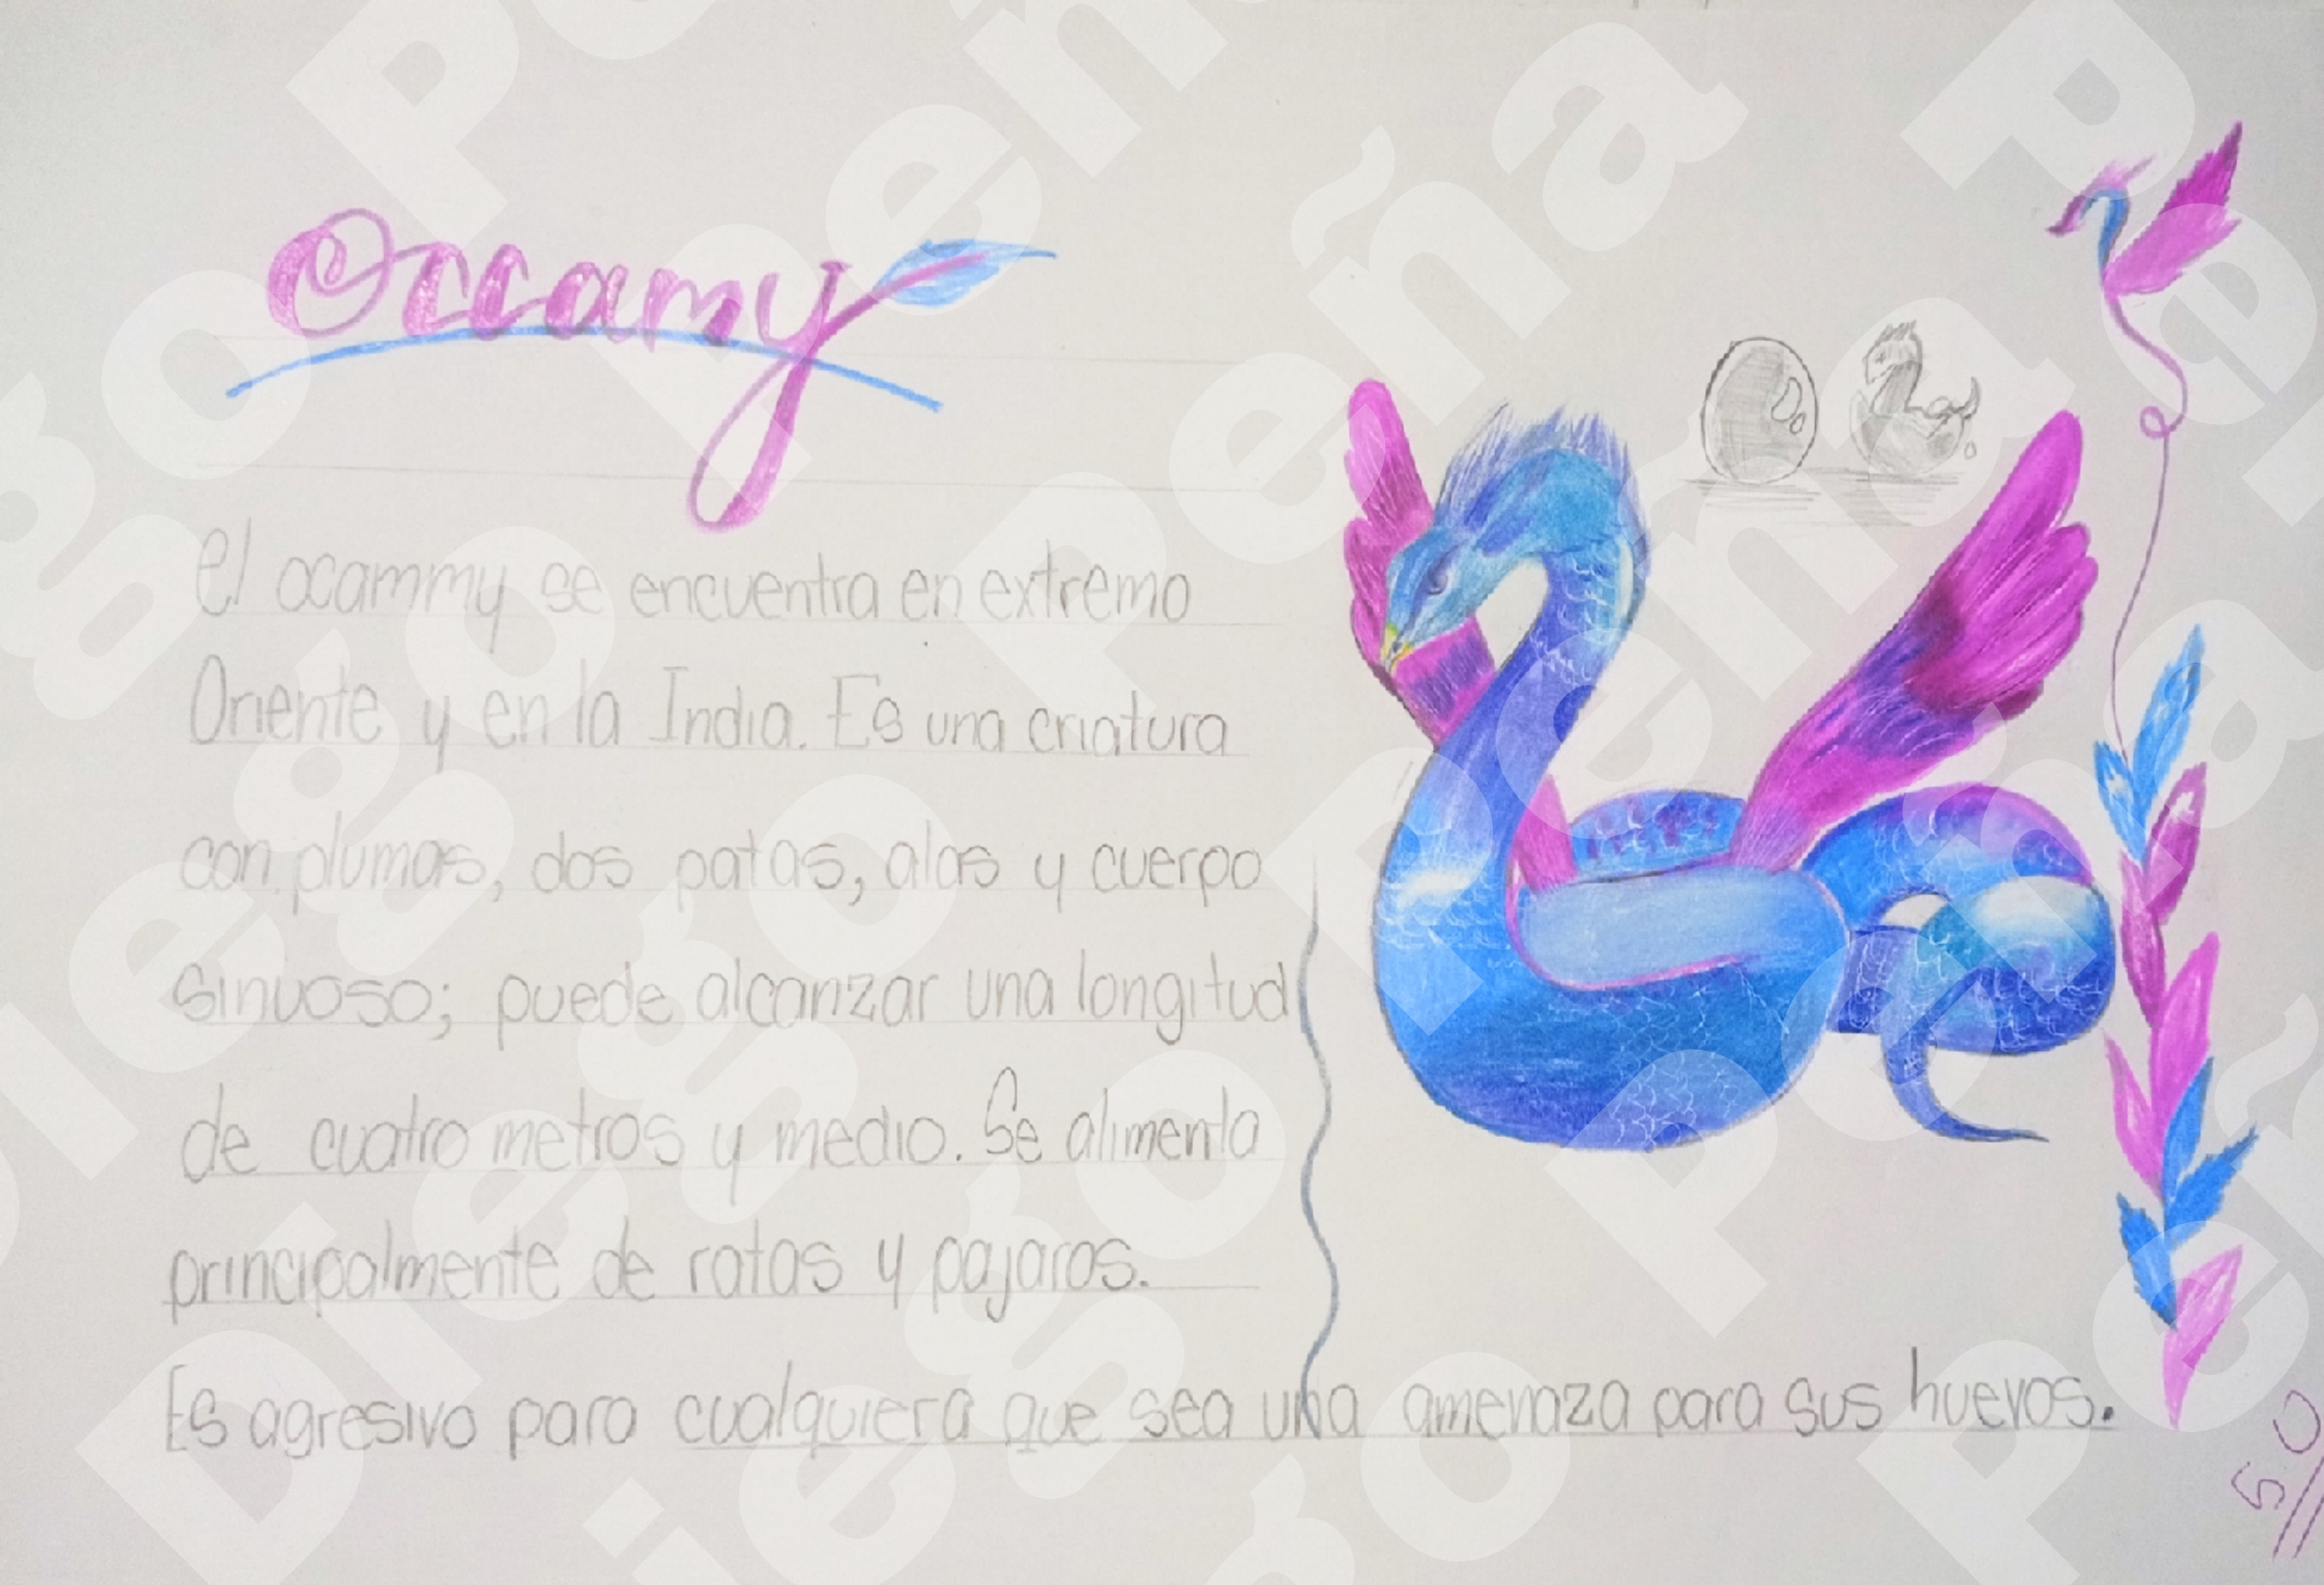 Occamy
el ocammy se encuentra en extremo
Oriente y en la India. Es una criatura
con plumas, dos patas, alas y cuerpo
sinuoso; puede alcanzar una longitud
de cuatro metros y medio. Se alimenta
principalmente de ratas y pajaros.
Es agresivo para cualquiera que sea una amenaza para sus huevos.
50
Diego Peña